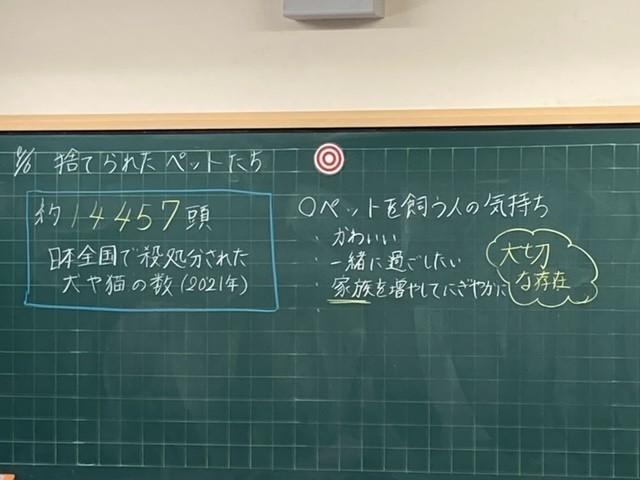 捨てられたペットたち
約14457頭
日本全国で殺処分された
犬や猫の数(2021年)
○ペットを飼う人の気持ち
・かわいい
・一緒に過ごしたい
・家族を増やしてにぎやかに
大切
な存在